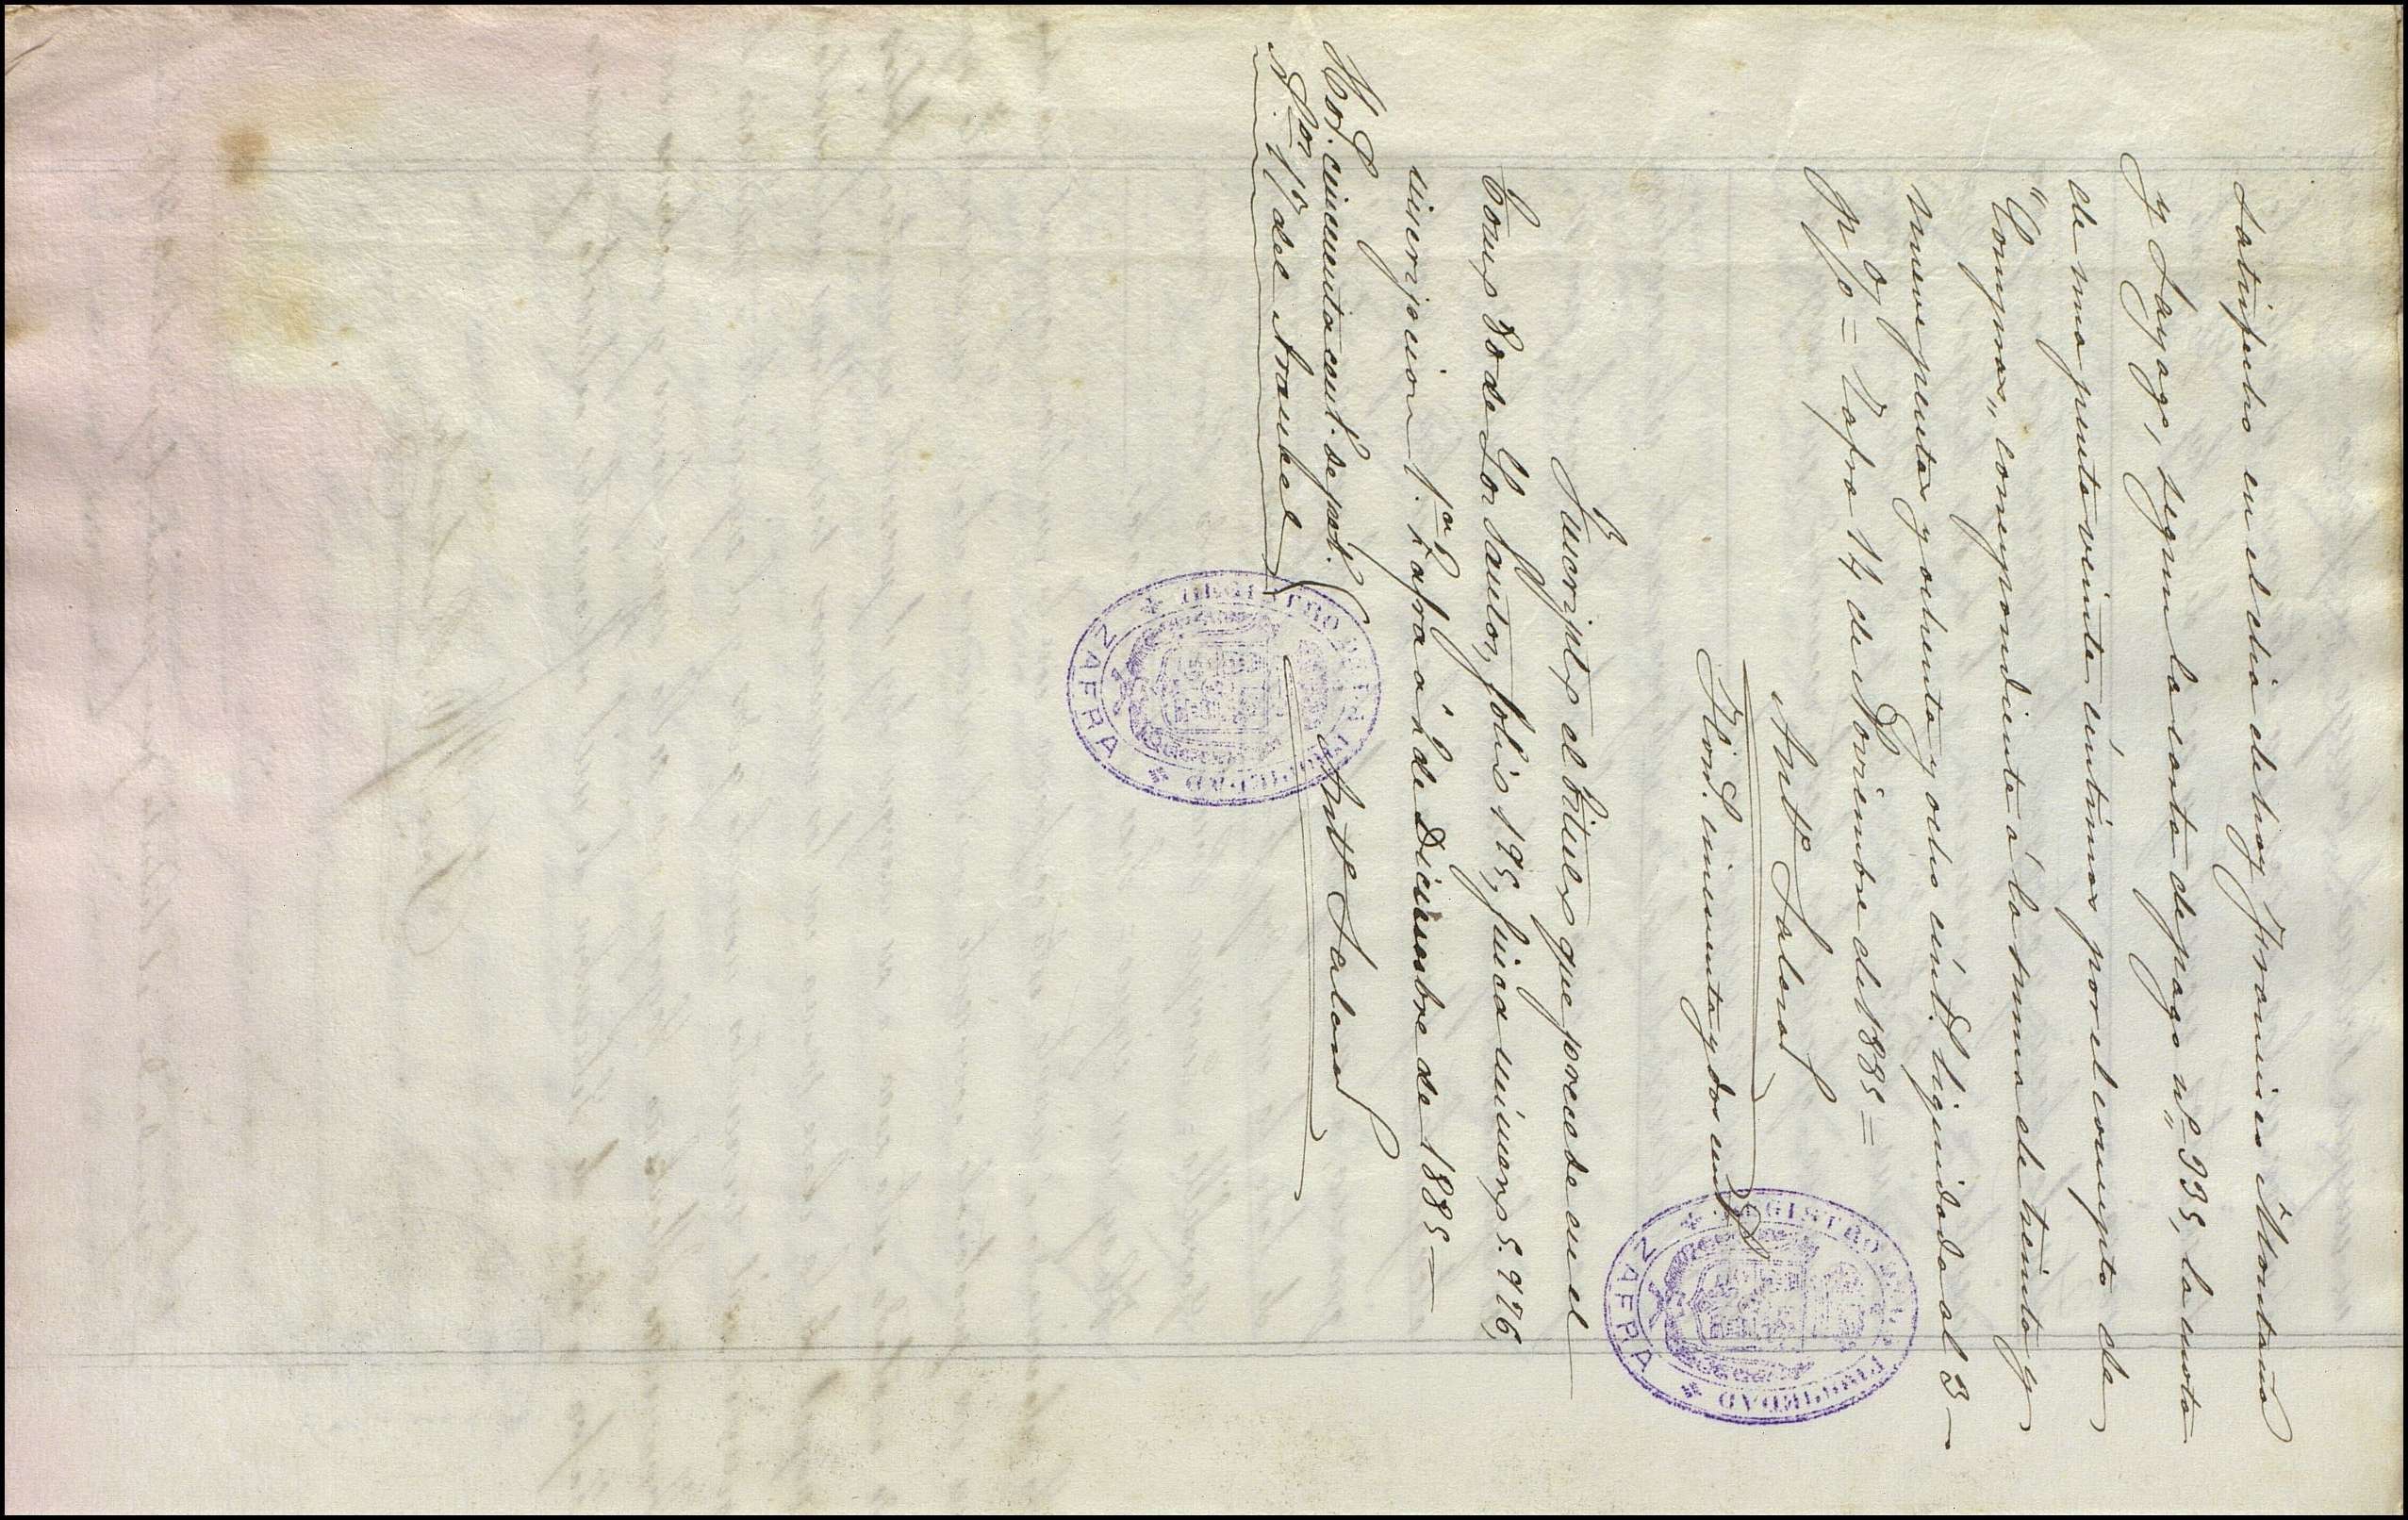 Satisfecho en el dia de hoy Francisco Montaño
y Gayago, segun la carta de pago nº 335, la cuota
de una peseta veinte céntimos por el concepto de
"Compras" correspondiente á la suma de treinta y
nueve pesetas y ochenta y ocho cént.s liquidada al 3
p% = Zafra 14 de Noviembre de 1885 =
Antº Salend
Hon.s cincuenta y dos cent.s
REGISTRO DE LA PROPIEDAD
ZAFRA
Inscripto el título que precede en el
tomo 80 de Los Santos, folio 195, finca número 5.976,
inscripcion 1ª. Zafra á 1 de Diciembre de 1885 —
Antº Salend
Hon.s cincuenta cent.s de pest.
Nºs 11 del Arancel
REGISTRO DE LA PROPIEDAD
ZAFRA